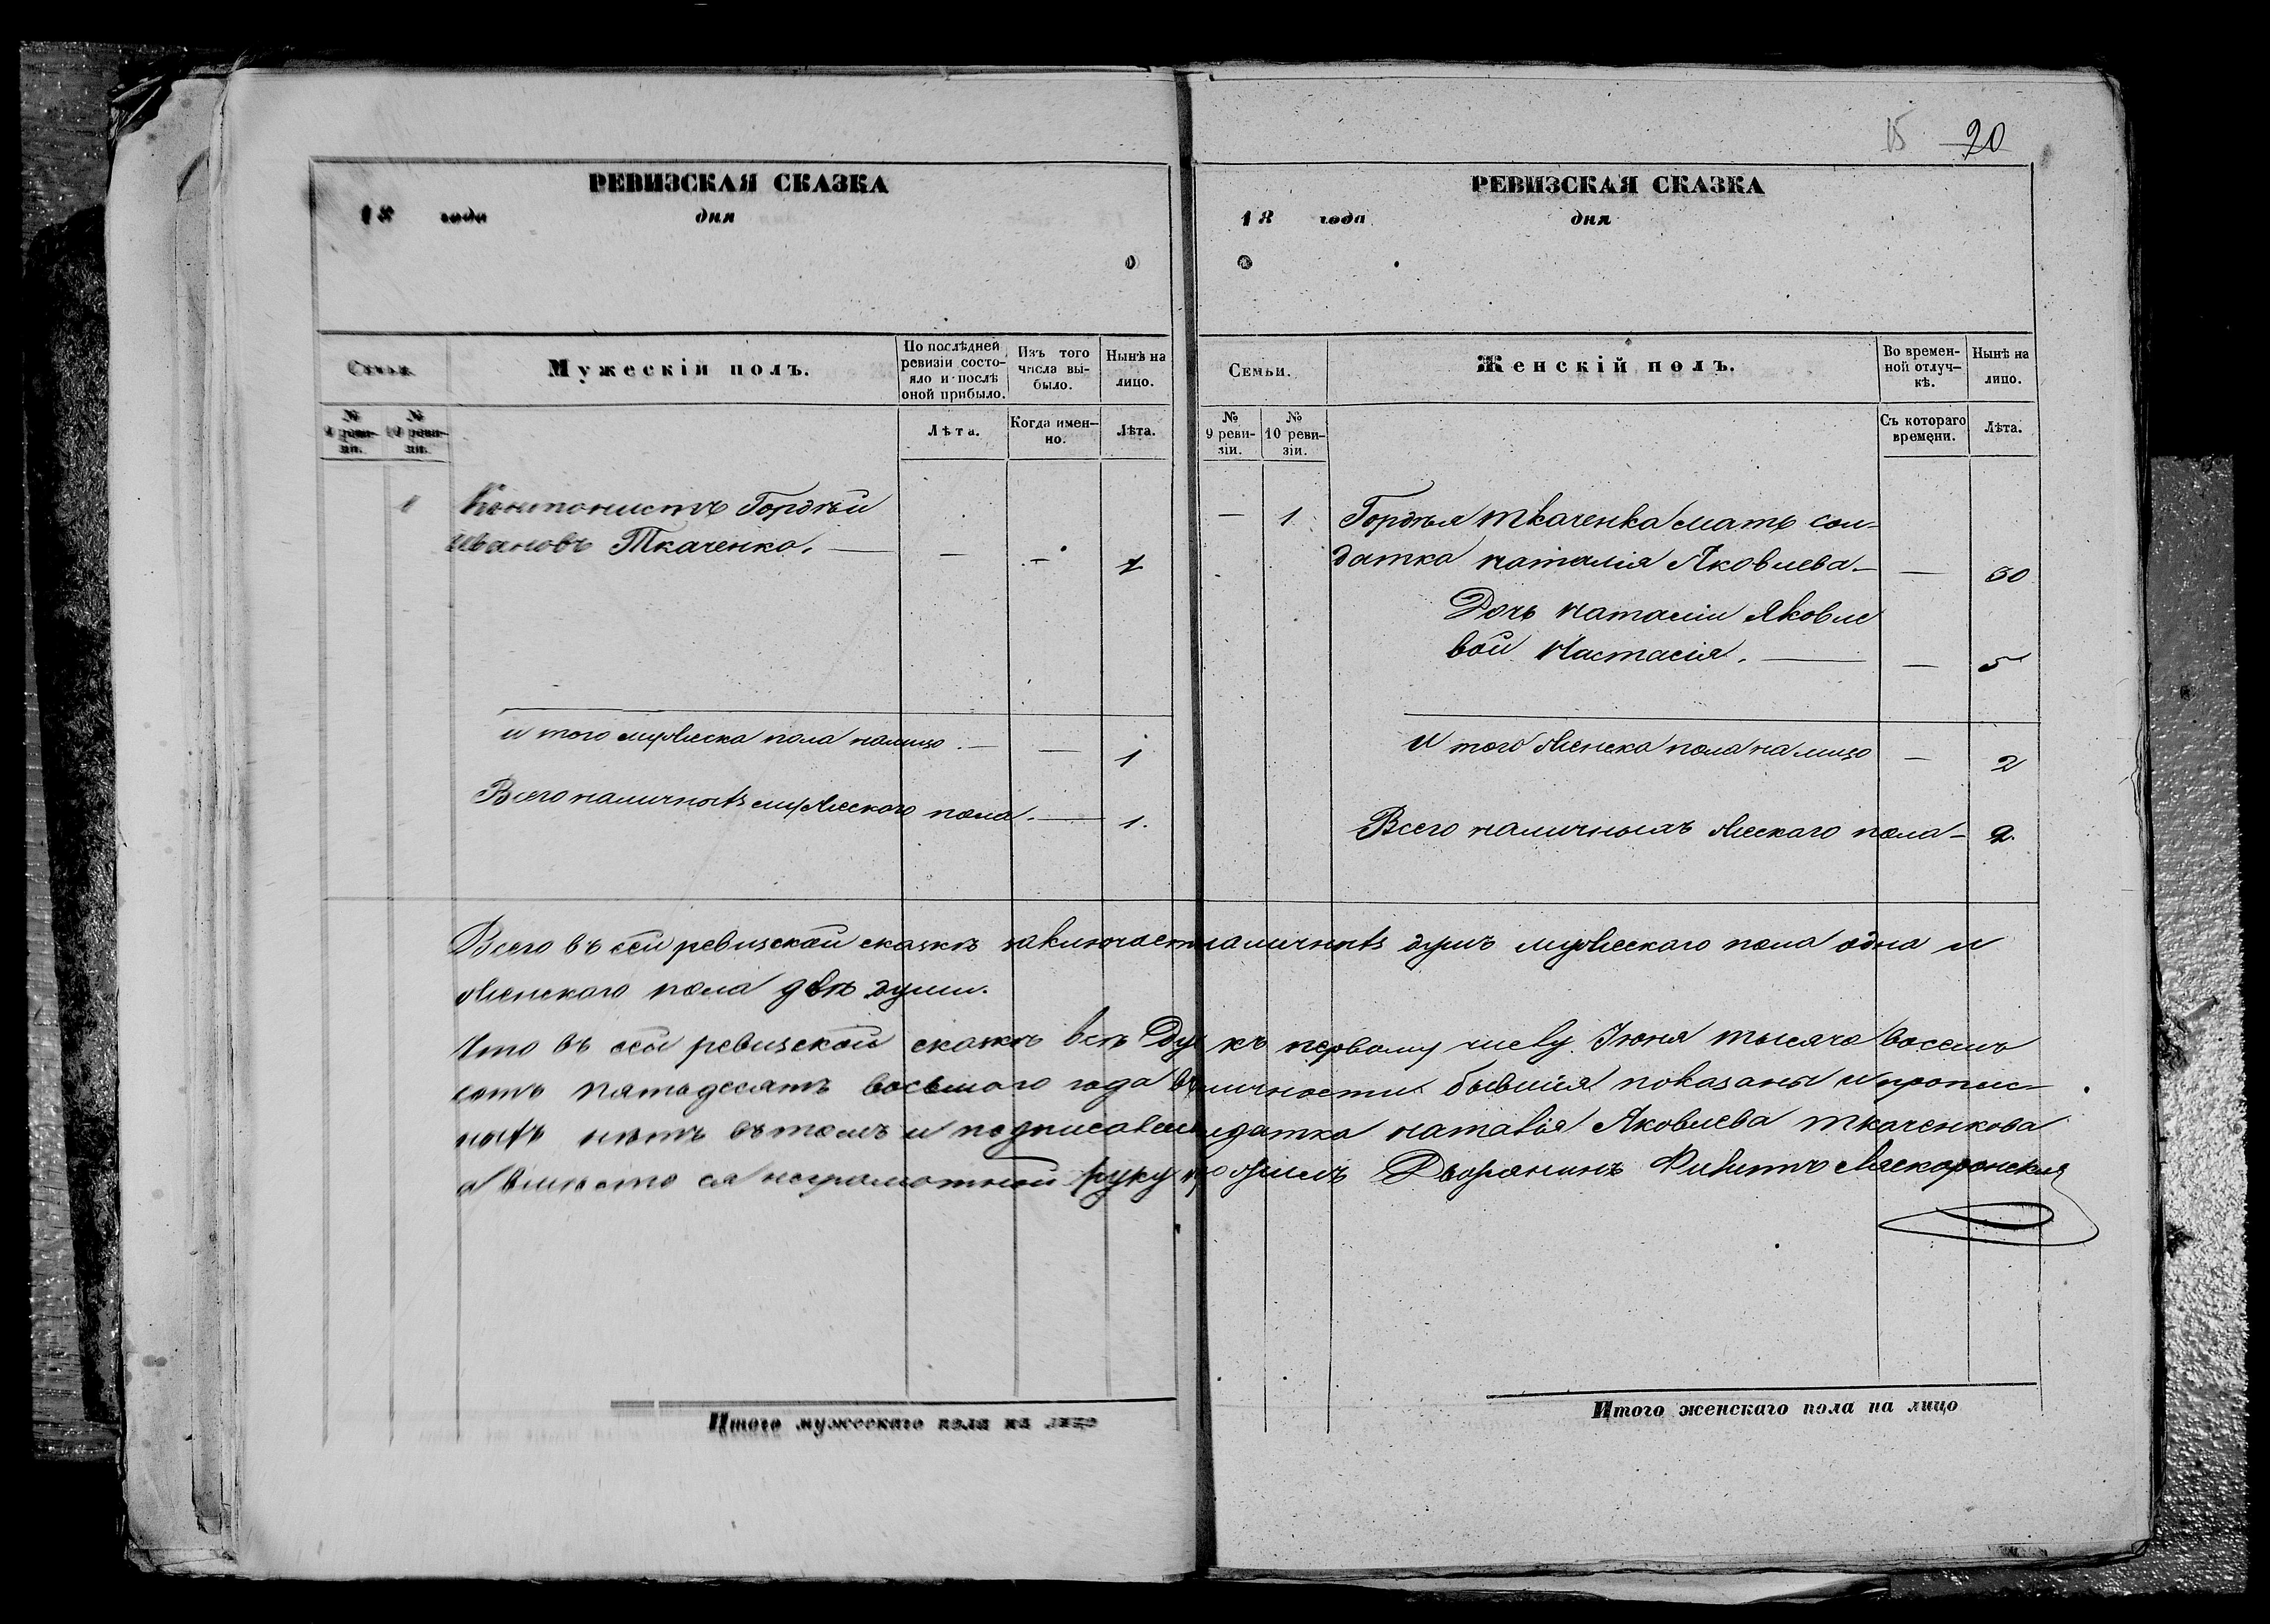 15 20
РЕВИЗСКАЯ СКАЗКА
18 года дня
Семьи.
Мужескій полъ.
По послѣдней ревизіи состояло и послѣ оной прибыло.
Изъ того числа выбыло.
Нынѣ на лицо.
№ 9 ревизіи.
№ 10 ревизіи.
Лѣта.
Когда именно.
Лѣта.
1 Кантонистъ Гордѣй
Ивановъ Ткаченко. — — —
и того мужеска пола налицо. — — 1
Всего наличныхъ мужескаго пола. — 1.
РЕВИЗСКАЯ СКАЗКА
18 года дня
Семьи.
Женскій полъ.
Во временной отлучкѣ.
Нынѣ на лицо.
№ 9 ревизіи.
№ 10 ревизіи.
Съ котораго времени.
Лѣта.
— 1 Гордѣя Ткаченка мать сол-
датка Наталія Яковлева — — 30
Дочь Наталіи Яковле
вой Настасія. — — 5
И того женска пола на лицо — 2
Всего наличныхъ женскаго пола — 2.
Всего въ сей ревизской сказкѣ заключает наличныхъ душъ мужескаго пола одна и
женскаго пола двѣ души.
Что въ сей ревизской сказкѣ всѣ Ду къ первому числу Іюня тысяча восемь
сотъ пятьдесятъ восьмого года въ личности бывшія показаны и пропис-
ныхъ нѣтъ въ томъ и подписалась датка Наталія Яковлева Ткаченкова
а вмѣсто ея неграмотной руку приложилъ Дворянинъ
Итого мужескаго пола на лицо
Итого женскаго пола на лицо